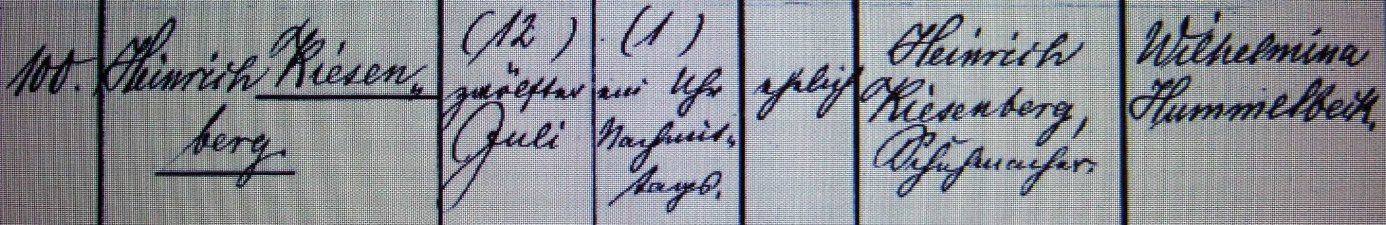 100.
Heinrich Riesen„
berg.
(12)
zwölfter
Juli
(1)
ein Uhr
Nachmit„
tags.
ehelich
Heinrich
Riesenberg,
Schuhmacher.
Wilhelmina
Hummelbeck.